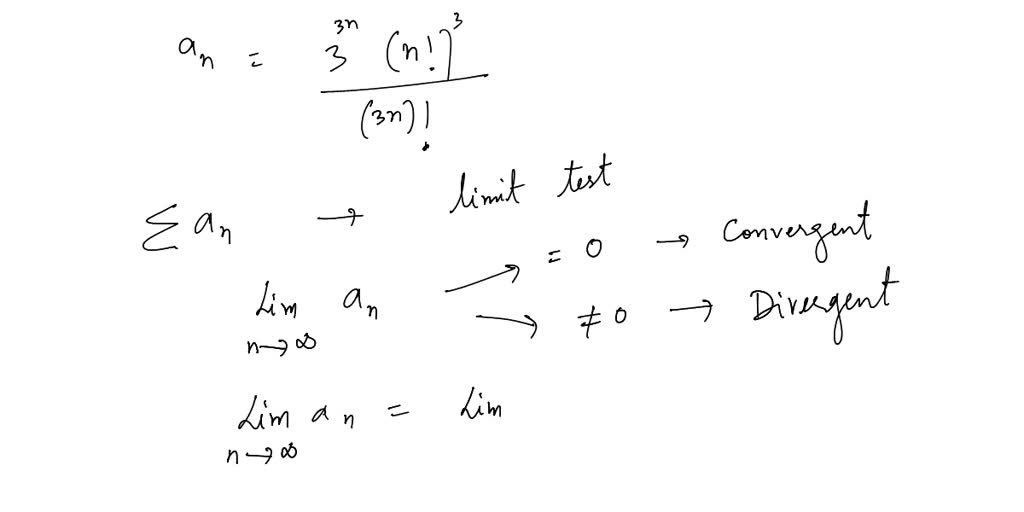 aₙ = 3³ⁿ (n!)³ / (3n)!
∑ aₙ → limit test
Lim n→∞ aₙ → = 0 → Convergent
→ ≠ 0 → Divergent
Lim n→∞ aₙ = Lim